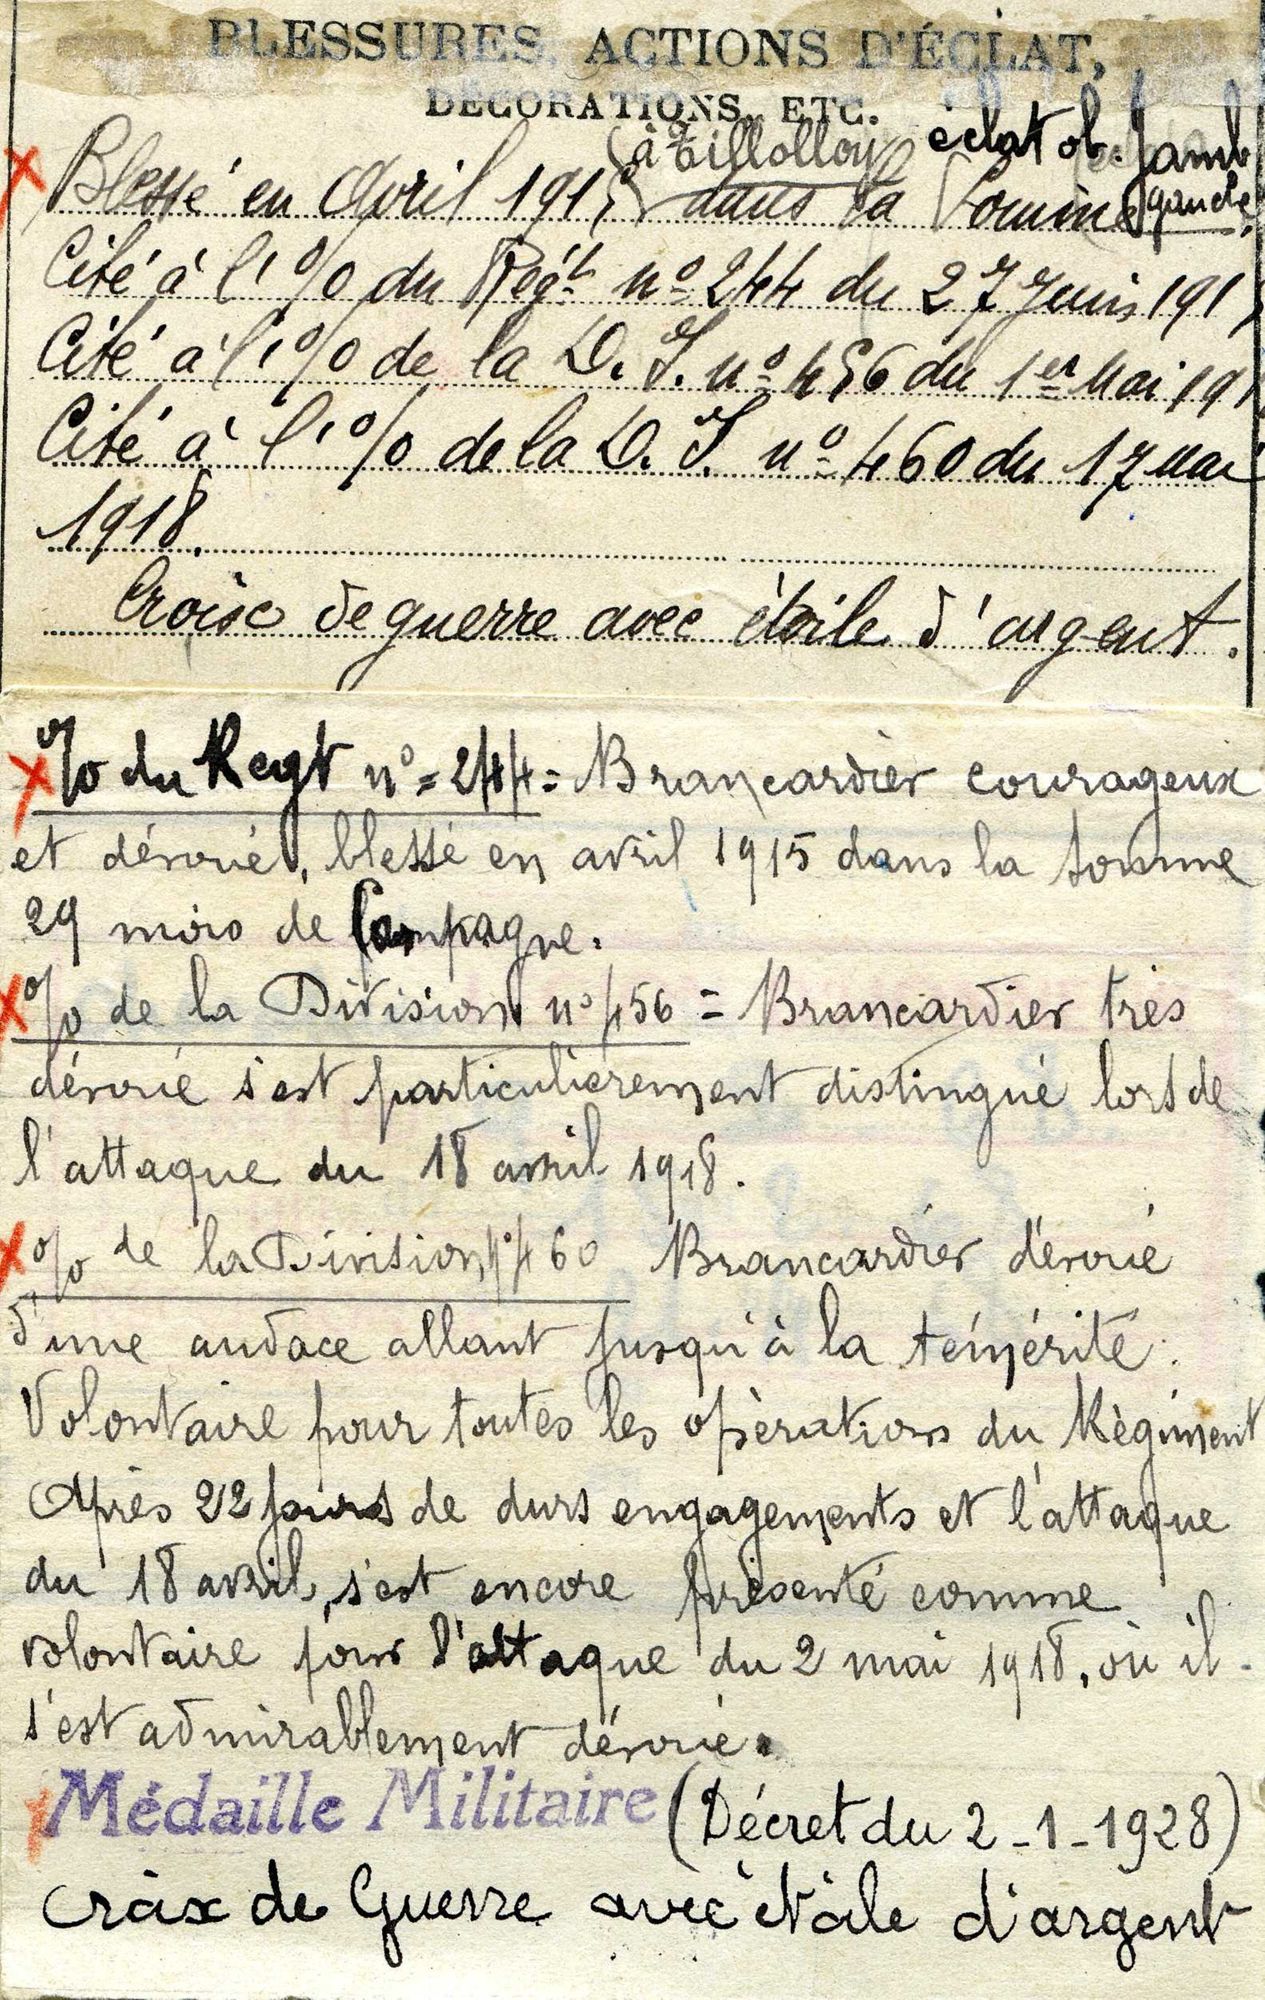 BLESSURES, ACTIONS D'ÉCLAT,
DÉCORATIONS, ETC.
à Tillolloy éclat ob. Jamb gauche
Blessé en Avril 1915 dans la Somme
Cité à l'o/o du Régt nº 244 du 27 Juin 191
Cité à l'o/o de la D. I. nº 456 du 1er Mai 191
Cité à l'o/o de la D. I. nº 460 du 17 mai
1918.
Croix de guerre avec étoile d'argent.
o/o du Regt nº = 244 = Brancardier courageux
et dévoué, blessé en avril 1915 dans la somme
29 mois de Campagne.
o/o de la Division nº 456 = Brancardier très
dévoué s'est particulièrement distingué lors de
l'attaque du 18 avril 1918.
o/o de la Division nº 460 Brancardier dévoué
d'une audace allant jusqu'à la témérité.
Volontaire pour toutes les opérations du Régiment
Après 22 jours de durs engagements et l'attaque
du 18 avril, s'est encore présenté comme
volontaire pour l'attaque du 2 mai 1918, où il
s'est admirablement dévoué.
Médaille Militaire (Décret du 2-1-1928)
Croix de Guerre avec étoile d'argent